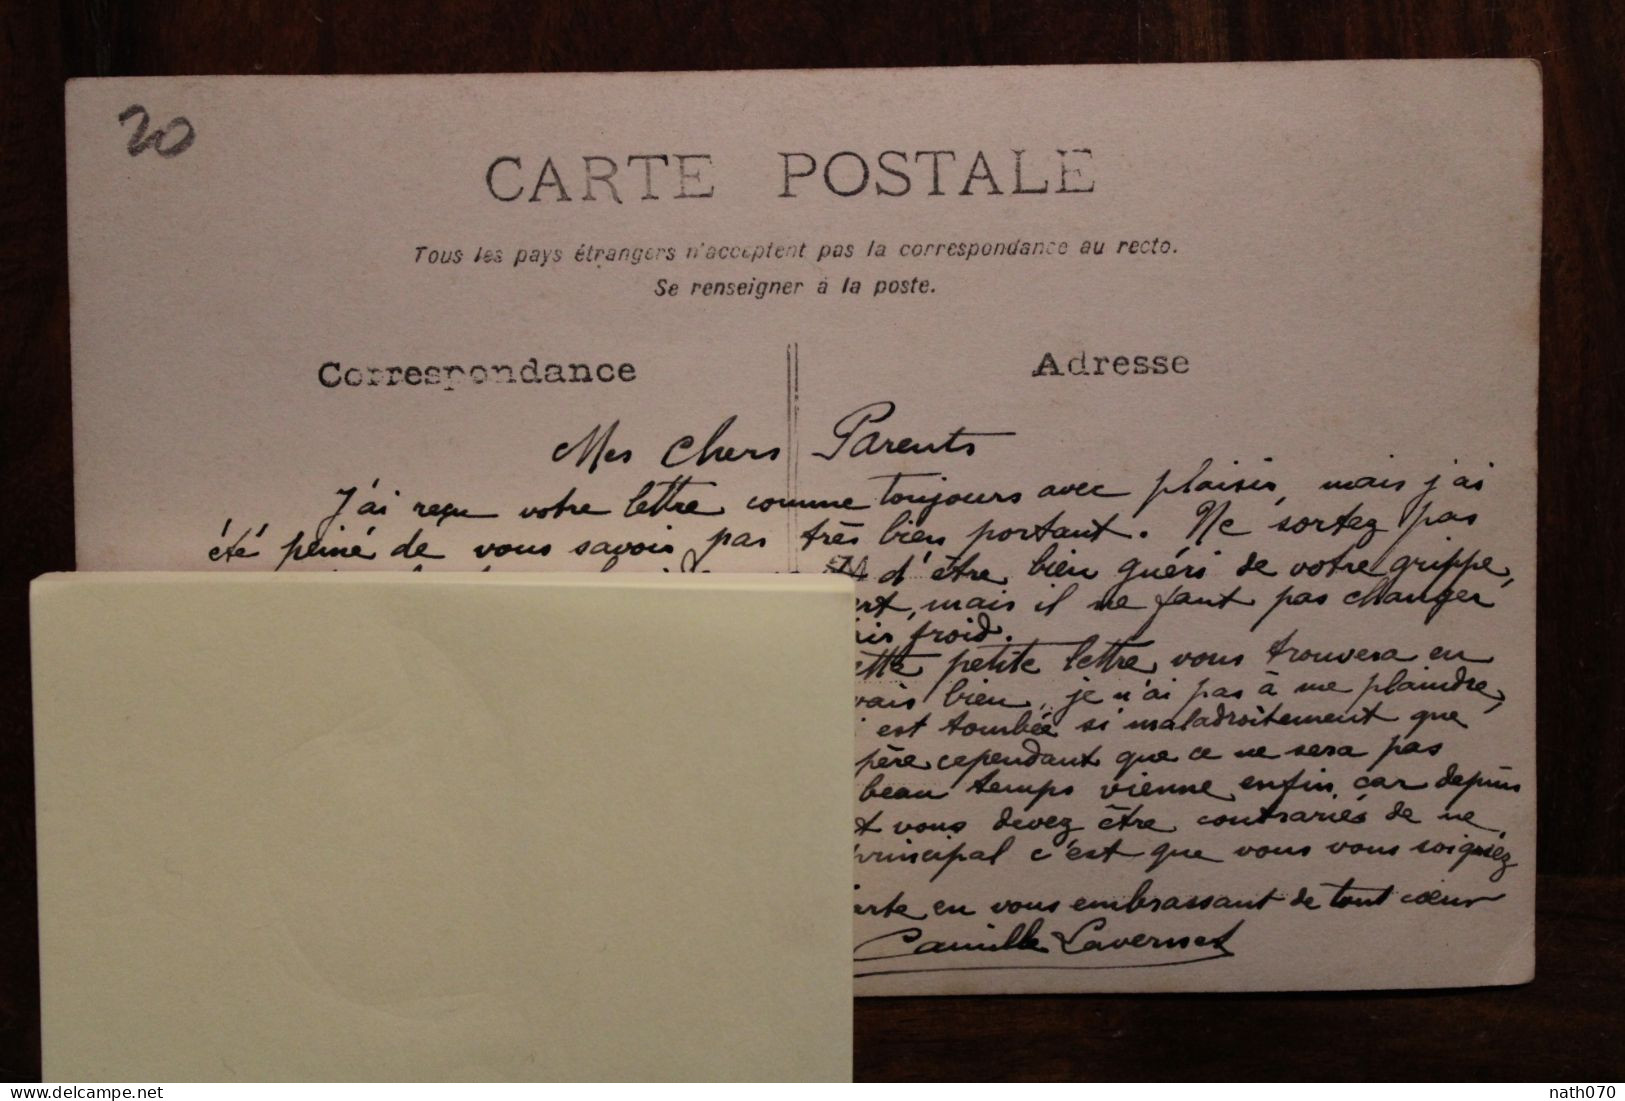 20
CARTE POSTALE
Tous les pays étrangers n'acceptent pas la correspondance au recto.
Se renseigner à la poste.
Correspondance
Adresse
Mes Chers Parents
J'ai reçu votre lettre comme toujours avec plaisir, mais j'ai
été peiné de vous savoir pas très bien portant. Ne sortez pas
d'être bien guéri de votre grippe,
mais il ne faut pas changer
froid.
petite lettre vous trouvera en
vais bien, je n'ai pas à me plaindre,
est tombée si maladroitement que
père cependant que ce ne sera pas
beau temps vienne enfin car depuis
vous devez être contrariés de ne
principal c'est que vous vous soigniez
arte en vous embrassant de tout cœur
Camille Lavernet
delcampe.net
nath070